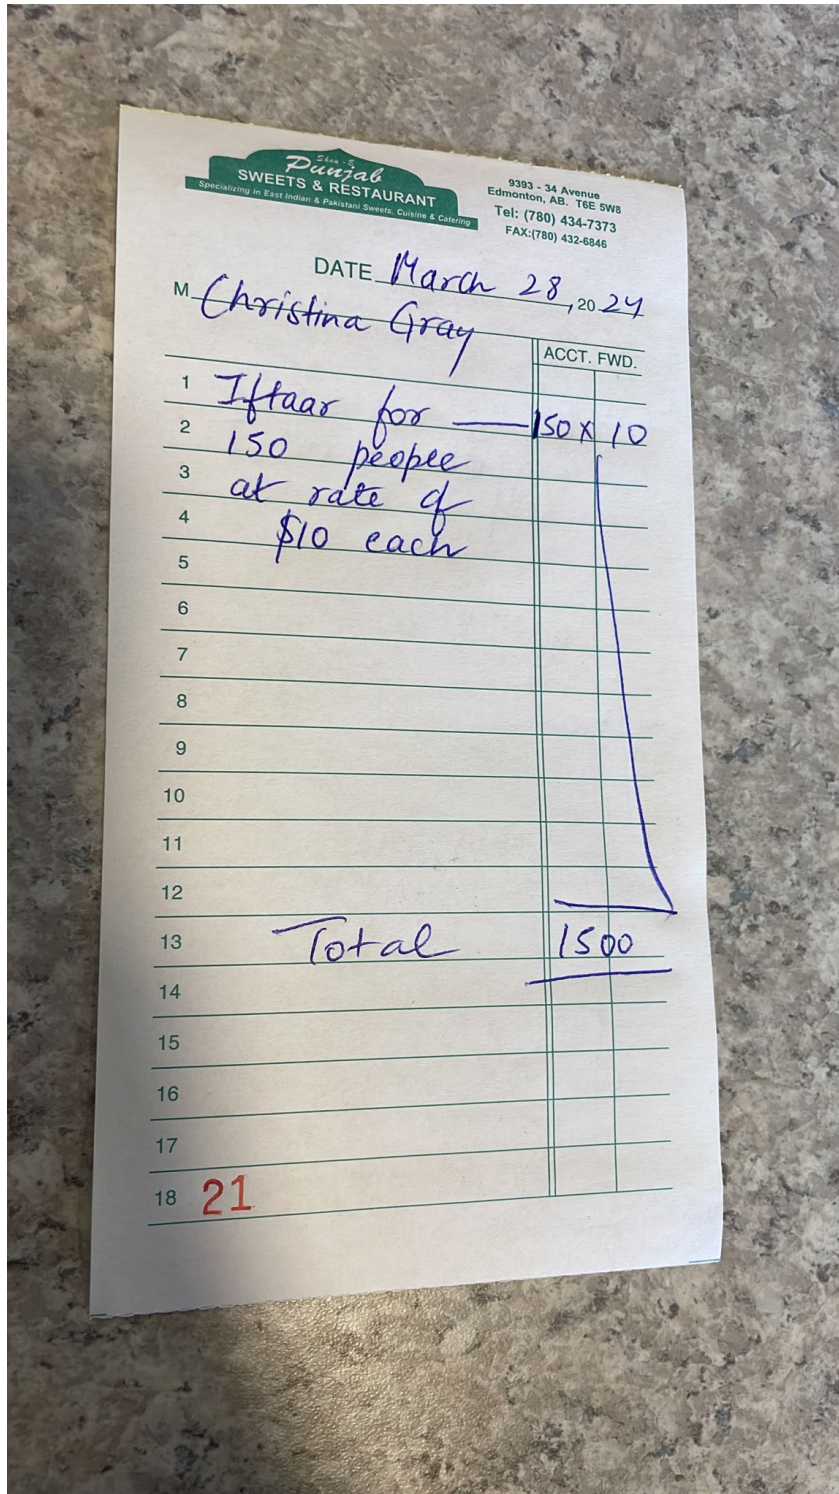 Shan-E
Punjab
SWEETS & RESTAURANT
Specializing in East Indian & Pakistani Sweets, Cuisine & Catering
9393 - 34 Avenue
Edmonton, AB. T6E 5W8
Tel: (780) 434-7373
FAX:(780) 432-6846
DATE March 28, 20 24
M Christina Gray
ACCT. FWD.
1 Iftaar for — 150 x 10
2 150 people
3 at rate of
4 $10 each
5
6
7
8
9
10
11
12
13 Total 1500
14
15
16
17
18 21